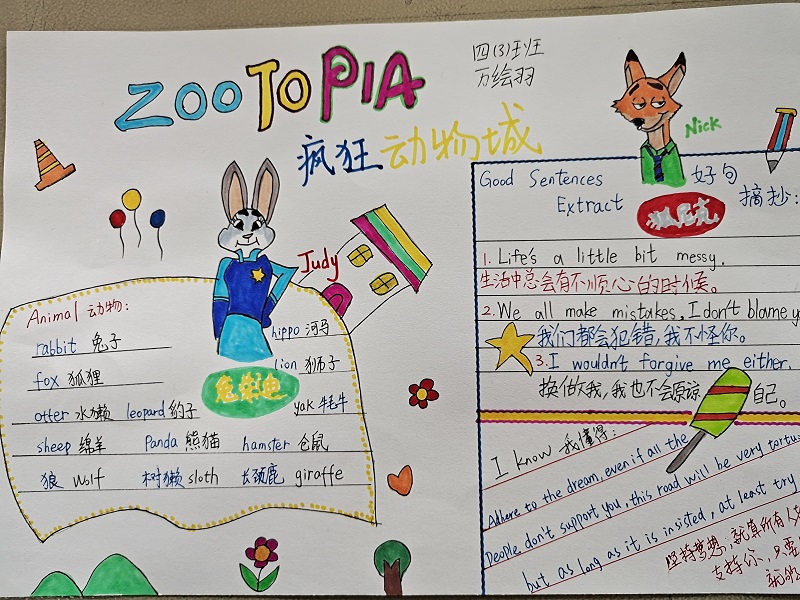 ZOOTOPIA
四(3)班
万绘羽
疯狂动物城
Nick
Judy
Animal 动物:
rabbit 兔子
hippo 河马
fox 狐狸
lion 狮子
兔朱迪
otter 水獭 leopard 豹子
yak 牦牛
sheep 绵羊 Panda 熊猫 hamster 仓鼠
狼 wolf 树獭 sloth 长颈鹿 giraffe
Good Sentences 好句
Extract 摘抄:
狐尼克
1. Life's a little bit messy.
生活中总会有不顺心的时候。
2. We all make mistakes, I don't blame
我们都会犯错,我不怪你。
3. I wouldn't forgive me either.
换做我,我也不会原谅自己。
I know 我懂得:
Adhere to the dream, even if all the
People don't support you, this road will be very
but as long as it is insisted, at least try
坚持梦想,就算所有
支持你,只要